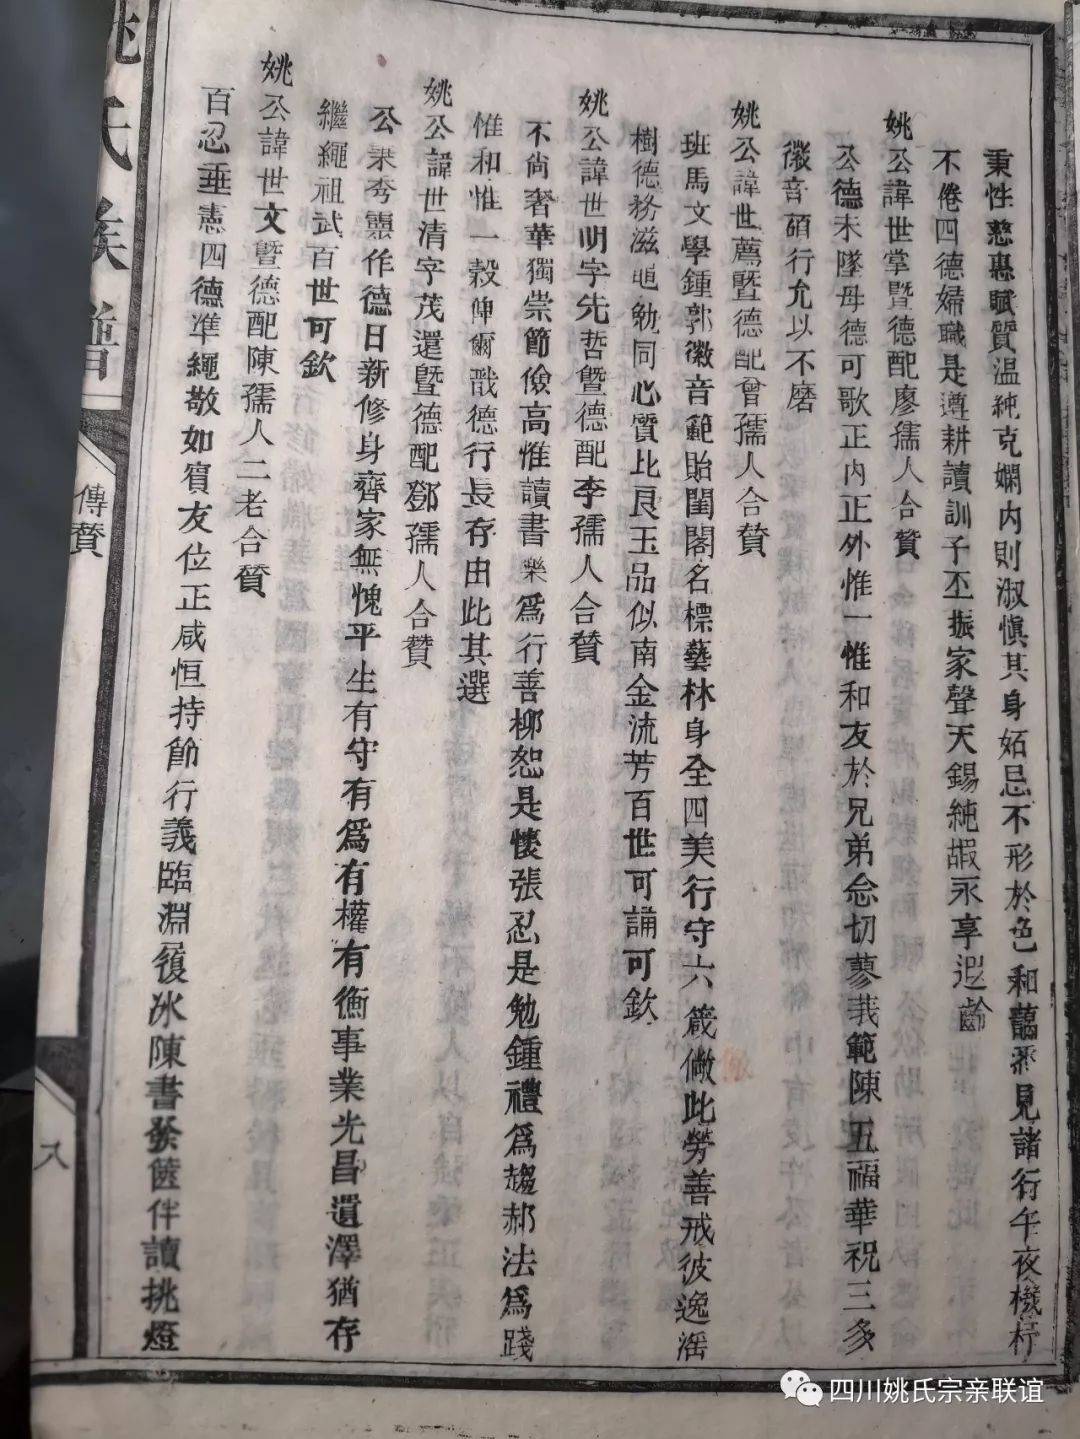 秉性慈惠賦質温純克嫻内則淑慎其身妬忌不形於色和藹悉見諸行午夜機杼
不倦四德婦職是遵耕讀訓子丕振家聲天錫純嘏永享遐齡
姚公諱世掌暨德配廖孺人合贊
公德未墜母德可歌正内正外惟一惟和友於兄弟念切蓼莪範陳五福華祝三多
徽音碩行允以不磨
姚公諱世薦暨德配曾孺人合贊
班馬文學鍾郭徽音範貽閨閣名標藝林身全四美行守六箴儆此勞善戒彼逸淫
樹德務滋黽勉同心質比良玉品似南金流芳百世可誦可欽
姚公諱世明字先哲暨德配李孺人合贊
不尚奢華獨崇節儉高惟讀書樂爲行善柳恕是懷張忍是勉鍾禮爲趨郝法爲踐
惟和惟一穀俾爾戩德行長存由此其選
姚公諱世清字茂還暨德配鄧孺人合贊
公秉秀靈作德日新修身齊家無愧平生有守有爲有權有衡事業光昌遺澤猶存
繼繩祖武百世可欽
姚公諱世文暨德配陳孺人二老合贊
百忍垂憲四德準繩敬如賓友位正咸恒持節行義臨淵履冰陳書發篋伴讀挑燈
姚氏族譜
傳贊
四川姚氏宗亲联谊